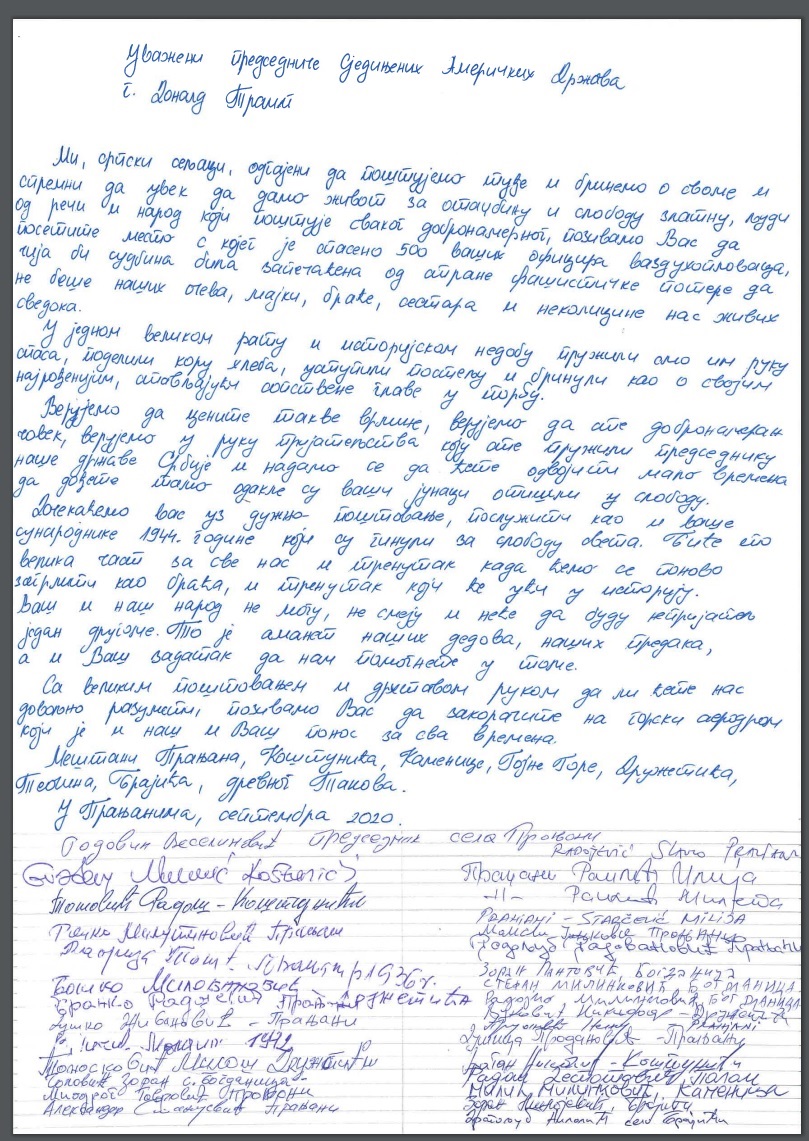 Уважени председниче Сједињених Америчких Држава
г. Доналд Трамп
Ми, српски сељаци, одгајени да поштујемо туђе и бринемо о своме и
спремни да увек да дамо живот за отаџбину и слободу златну, људи
од речи и народ који поштује сваког добронамерног, позивамо Вас да
посетите место с којег је спасено 500 ваших официра ваздухопловаца,
чија би судбина била запечаћена од стране фашистичке потере да
не беше наших очева, мајки, браће, сестара и неколицине нас живих
сведока.
У једном великом рату и историјском недобу пружили смо им руку
спаса, поделили кору хлеба, уступили постељу и бринули као о својим
најрођенијим, стављајући сопствене главе у торбу.
Верујемо да цените такве врлине, верујемо да сте добронамеран
човек, верујемо у руку пријатељства коју сте пружили председнику
наше државе Србије и надамо се да ћете одвојити мало времена
да дођете тамо одакле су ваши јунаци отишли у слободу.
Дочекаћемо вас уз дужно поштовање, послужити као и ваше
сународнике 1944. године који су гинули за слободу света. Биће то
велика част за све нас и тренутак када ћемо се поново
загрлити као браћа, и тренутак који ће ући у историју.
Ваш и наш народ не могу, не смеју и неће да буду непријатељ
један другоме. То је аманет наших дедова, наших предака,
а и Ваш задатак да нам помогнете у томе.
Са великим поштовањем и дрхтавом руком да ли ћете нас
довољно разумети, позивамо Вас да закорачите на Горски аеродром
који је и наш и Ваш понос за сва времена.
Мештани Прањана, Коштунића, Каменице, Гојне Горе, Дружетића,
Теочина, Брајића, древног Такова.
У Прањанима, септембра 2020.
Годовић Веселиновић председник села Прањани
RADOJEVIĆ Slavo
Прањани Раилић Илија
Томовић Радош - Коштунићи
PRANJANI - STARČEVIĆ MILIJA
Милутиновић Прањани
Бошко Миловановић
Зоран Пантовић Богданица
СТЕВАН МИЛИНКОВИЋ БОГДАНИЦА
Бранко Раджевић
Душко Живановић - Прањани
1942
Милош Дружетић
Зоран с. Богданица
Миодраг Прањани
Александар Прањани
Милинковић, Каменица
село Брајићи